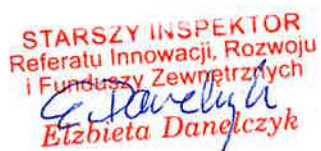 STARSZY INSPEKTOR
Referatu Innowacji, Rozwoju
i Funduszy Zewnętrznych
E. Danelczyk
Elżbieta Danelczyk